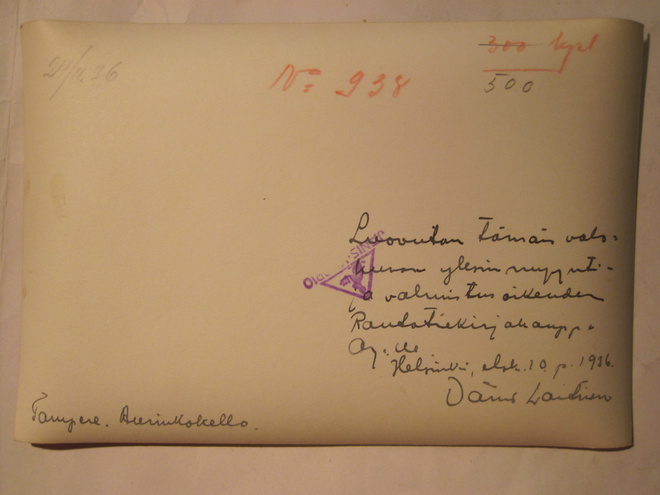 300 kpl
Nº 938
500
Luovutan tämän valo-
kuvan yksin myynti-
ja valmistus oikeuden
Rautatiekirjakaupp.
Oy. lle
Helsinki, elok. 10 p. 1936.
Väinö Laitinen
Tampere. Aurinkokello.